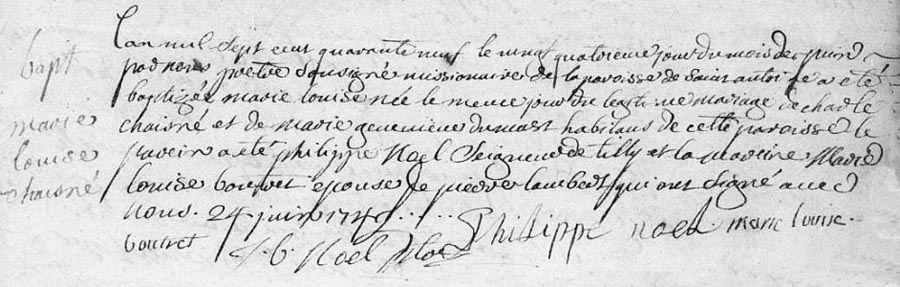 bapt
marie
louise
chaisné
Lan mil sept cent quarante neuf le vingt quatrieme jour du mois de juin
par nous prêtre sousigné missionaire de la paroisse de Saint antoi ne a eté
baptizée marie louise née le meme jour du legiti me mariage de charle
chaisné et de marie genevieve habitans de cette paroisse le
parein a eté philippe Noel Seigneur de tilly et la mareine Marie
louise bouvret epouse de pierre lambert qui ont signé avec
nous. 24 juin 1749
Philippe noel marie louise
bouvret
j. b. Noel